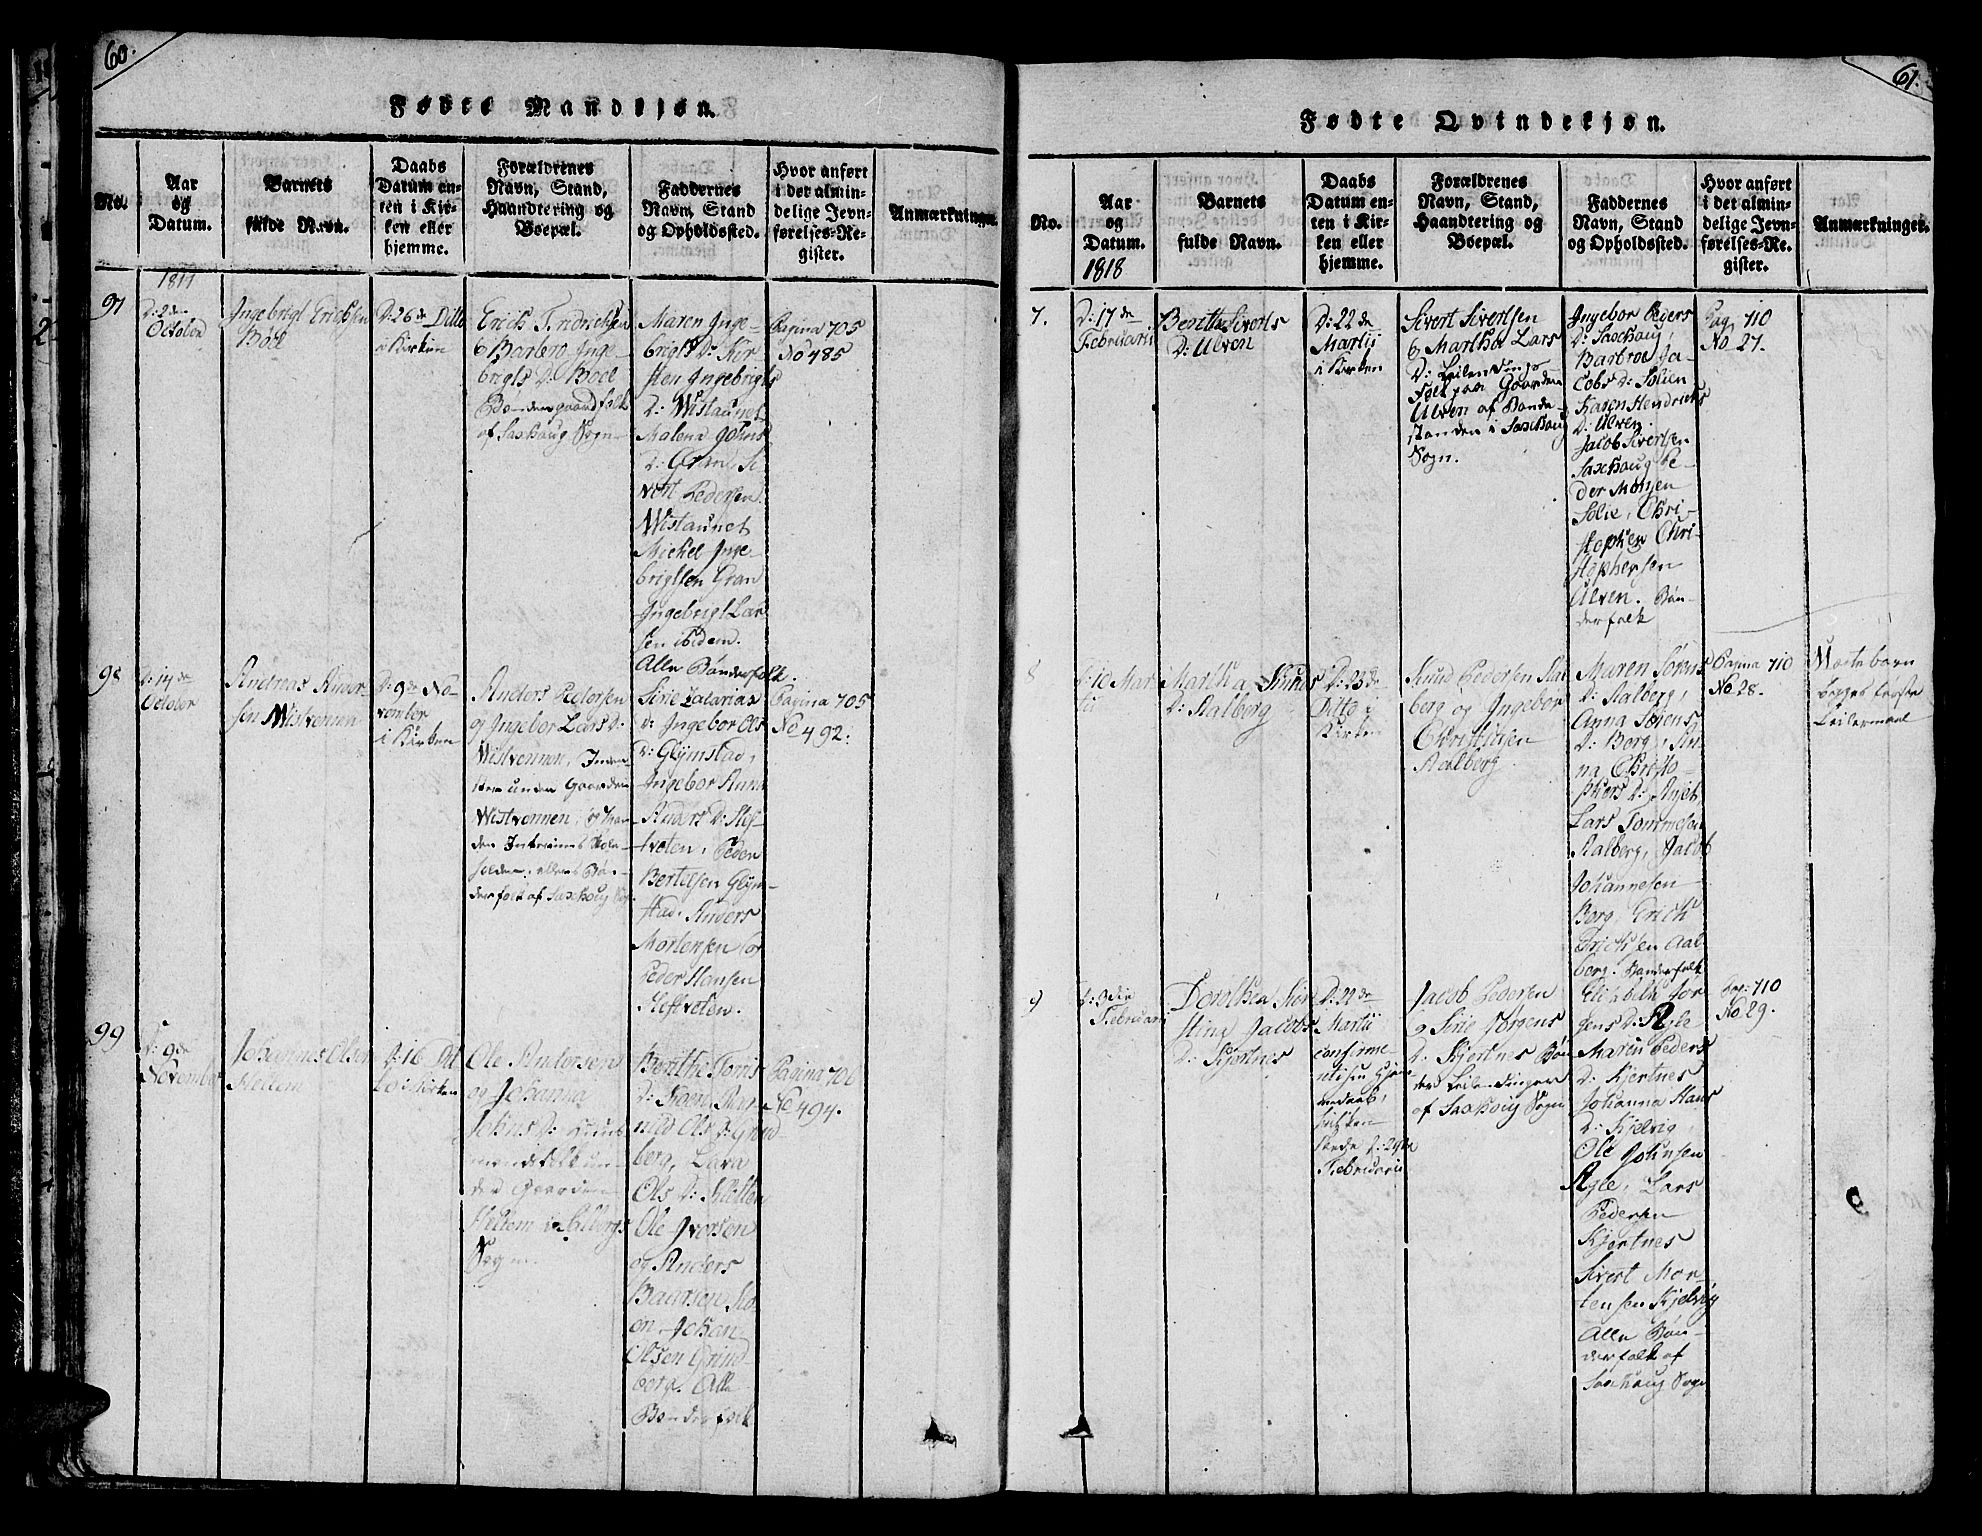 60.
Fødte Mandekjøn.
No.
Aar
og
Datum.
Barnets
fulde Navn.
Daabs
Datum en-
ten i Kir-
ken eller
hjemme.
Forældrenes
Navn, Stand,
Haandtering og
Boepæl.
Faddernes
Navn, Stand
og Opholdssted.
Hvor anført
i det almin-
delige Jevn-
førelses-Re-
gister.
Anmærkninger.
1817
97
D: 2de
October
Ingebrigt Erichsen
Böel
D: 26de Ditto
i Kirken
Erich Fridrichsen
og Barbro Inge-
brigts D: Böel
Bönder gaardfolk
af Saxhaug Sogn
Maren Inge-
brigts D: Kir-
sten Ingebrigts
D: Wistaunet
Malena Johns
D: Gran, Si
vert Pedersen
Wistaunet
Michel Inge-
brigtsen Gran
Ingebrigt Lar
sen ibidem.
Alle Bönderfolk.
Pagina 705
No 485
98
D: 14de
October
Andreas Ander-
sen Wistvennen
D: 9de No-
vember
i Kirken
Anders Pedersen
og Ingebor Lars D:
Wistvennen, Inder-
ster under Gaarden
Wistvennen,
den Interims Skole-
holder, ellers Bön-
derfolk af Saxhaug Sogn
Sirie Zacarias
D: Ingebor Ols
D: Glÿmstad,
Ingebor
Anders D: Hef-
tveten, Peder
Bertelsen Glÿm-
stad. Anders
Mortensen
Peder Hansen
Heftveten.
Pagina 705
No 492.
99
D: 9de
November
Johannes Olsen
Hellem
D: 16 Dit
to i Kirken
Ole Andersen
og Johanna
Johns D: Huus
mandsfolk un-
der Gaarden
Hellem i
Sogn.
Berithe Tomis
D: Koen, Rar-
nild Ols D: Grind-
berg, Lava
Ols D: Kletten
Ole Iversen
og Anders
Baarsen
Johan
Olsen Grind
berg. Alle
Bönderfolk
Pagina 706
No 494.
61.
Fødte Qvindekjøn.
No.
Aar
og
Datum.
Barnets
fulde Navn.
Daabs
Datum en-
ten i Kir-
ken eller
hjemme.
Forældrenes
Navn, Stand,
Haandtering og
Boepæl.
Faddernes
Navn, Stand
og Opholdssted.
Hvor anført
i det almin-
delige Jevn-
førelses-Re-
gister.
Anmærkninger.
1818
7.
D: 17de
Februarii
Berith Siverts
D: Ulven
D: 22de
Martii
i Kirken
Sivert Sivertsen
og Martha Lars
D: Leilendings
Folk paa Gaarden
Ulven af Bonde-
standen i Saxhaug
Sogn.
Ingebor Peders
D: Saxhaug,
Barbroe Ja-
cobs D: Solien
Karen Hendrichs
D: Ulven.
Jacob Sivertsen
Saxhaug Pe-
der Monsen
Solie, Chri-
stopher Chri-
stophersen
Ulven. Bön-
derfolk
Pag. 710
No 27.
8
D: 10 Mar
tii
Martha Knuds
D: Aalberg
D: 23de
Ditto i
Kirken
Knud Pedersen Aal
berg og Ingebor
Aalberg.
Maren Sörens
D: Aalberg,
Anna Sörens
D: Borg, An-
na Christo-
phers D:
Lars Tommesen
Aalberg, Jacob
Johannesen
Borg, Erich
Erichsen Aal
berg. Bönderfolk
Pagina 710
No. 28.
barn
begges förste
Leiermaal
9
D: 3die
Februarii
Dorothea Kir
stina Jacobs
D: Kjertnes
D: 22de
Martii
confirme-
retsin Hjem
medaab,
hvilken
skede D: 29de
Februarii
Jacob Pedersen
og Sirie Jörgens
D: Kjertnes Bön
der Leilendinger
af Saxhaug Sogn
Elisabeth Jör
gens D: Agle
Maren Peders
D: Kjertnes
Johanna Hans
D: Kjelvig,
Ole Johnsen
Agle, Lars
Pedersen
Kjertnes
Sivert Mor-
tensen Kjelvig
Alle Bön-
derfolk af
Saxhaug Sogn
Pag: 710
No. 29.